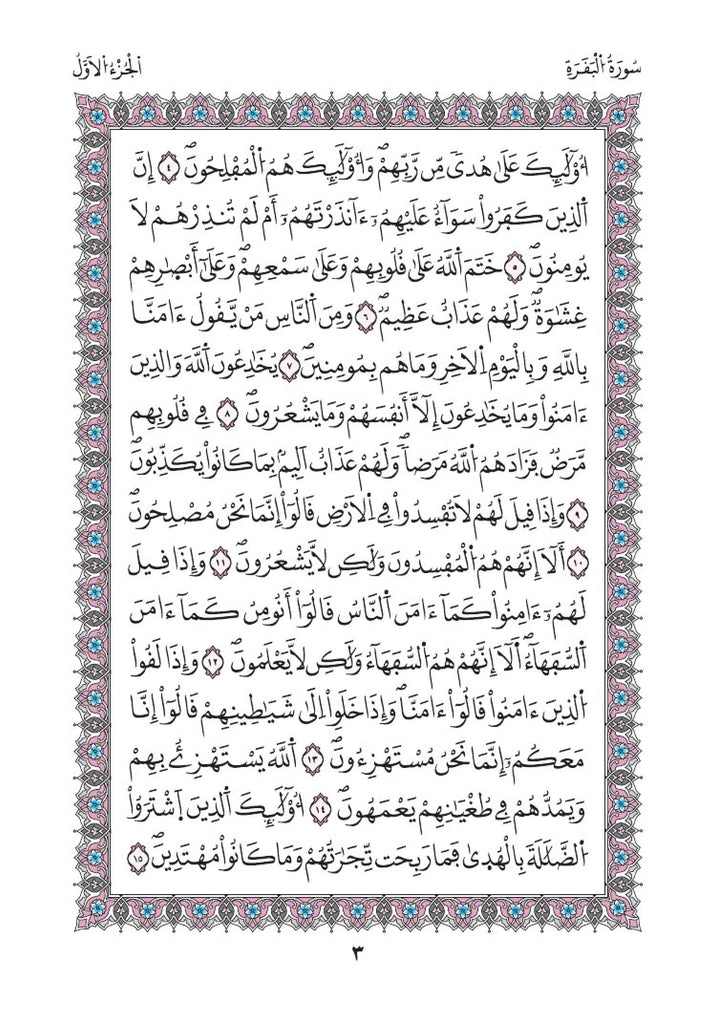 سُورَةُ الْبَقَرَةِ
الْجُزْءُ الْأَوَّلُ
أُوْلَٰٓئِكَ عَلَىٰ هُدىٗ مِّن رَّبِّهِمْۖ وَأُوْلَٰٓئِكَ هُمُ اُ۬لْمُفْلِحُونَۖ ٤ إِنَّ
اَ۬لذِينَ كَفَرُواْ سَوَآءٌ عَلَيْهِمُۥٓ ءَآنذَرْتَهُمُۥٓ أَمْ لَمْ تُنذِرْهُمْ لَا
يُومِنُونَۖ ٥ خَتَمَ اَ۬للَّهُ عَلَىٰ قُلُوبِهِمْ وَعَلَىٰ سَمْعِهِمْۖ وَعَلَىٰٓ أَبْصٰ۪رِهِمْ
غِشَٰوَةٞۖ وَلَهُمْ عَذَابٌ عَظِيمٞۖ ٦ وَمِنَ اَ۬لنَّاسِ مَنْ يَّقُولُ ءَامَنَّا
بِاللَّهِ وَبِالْيَوْمِ اِ۬لَاخِرِ وَمَا هُم بِمُومِنِينَۖ ٧ يُخَٰدِعُونَ اَ۬للَّهَ وَالذِينَ
ءَامَنُواْ وَمَا يُخَٰدِعُونَ إِلَّآ أَنفُسَهُمْ وَمَا يَشْعُرُونَۖ ٨ فِے قُلُوبِهِم
مَّرَضٞ فَزَادَهُمُ اُ۬للَّهُ مَرَضاٗۖ وَلَهُمْ عَذَابٌ اَلِيمُۢ بِمَا كَانُواْ يُكَذِّبُونَۖ
٩ وَإِذَا قِيلَ لَهُمْ لَا تُفْسِدُواْ فِے اِ۬لَارْضِ قَالُوٓاْ إِنَّمَا نَحْنُ مُصْلِحُونَۖ
١٠ أَلَآ إِنَّهُمْ هُمُ اُ۬لْمُفْسِدُونَ وَلَٰكِن لَّا يَشْعُرُونَۖ ١١ وَإِذَا قِيلَ
لَهُمُۥٓ ءَامِنُواْ كَمَآ ءَامَنَ اَ۬لنَّاسُ قَالُوٓاْ أَنُومِنُ كَمَآ ءَامَنَ
اَ۬لسُّفَهَآءُۖ اَلَآ إِنَّهُمْ هُمُ اُ۬لسُّفَهَآءُ وَلَٰكِن لَّا يَعْلَمُونَۖ ١٢ وَإِذَا لَقُواْ
اُ۬لذِينَ ءَامَنُواْ قَالُوٓاْ ءَامَنَّاۖ وَإِذَا خَلَوِاْ اِلَىٰ شَيَٰطِينِهِمْ قَالُوٓاْ إِنَّا
مَعَكُمُۥٓ إِنَّمَا نَحْنُ مُسْتَهْزِءُونَۖ ١٣ اَ۬للَّهُ يَسْتَهْزِۓُ بِهِمْ
وَيَمُدُّهُمْ فِے طُغْيَٰنِهِمْ يَعْمَهُونَۖ ١٤ أُوْلَٰٓئِكَ اَ۬لذِينَ اَ۪شْتَرَوُاْ
اُ۬لضَّلَٰلَةَ بِالْهُد۪ىٰ فَمَا رَبِحَت تِّجَٰرَتُهُمْ وَمَا كَانُواْ مُهْتَدِينَۖ ١٥
٣